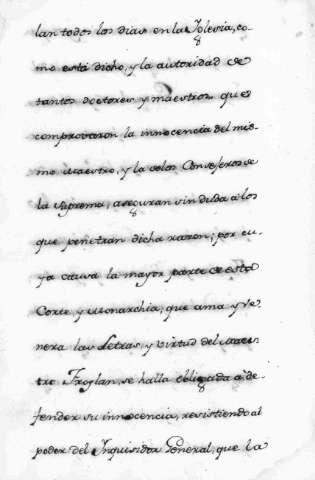 lan todos los dias en la Iglesia, co-
mo está dicho, y la autoridad de
tantos doctores y maestros que
comprovaron la innocencia del mis-
mo Maestro, y la de los Consejeros de
la Suprema, aseguran sin duda a los
que penetran dicha razon; por cu-
ya causa la mayor parte de esta
Corte y Monarchia, que ama y ve-
nera las Letras, y virtud del Maes-
tro Froylan, se halla obligada a de-
fender su innocencia, resistiendo al
poder del Inquisidor General, que la